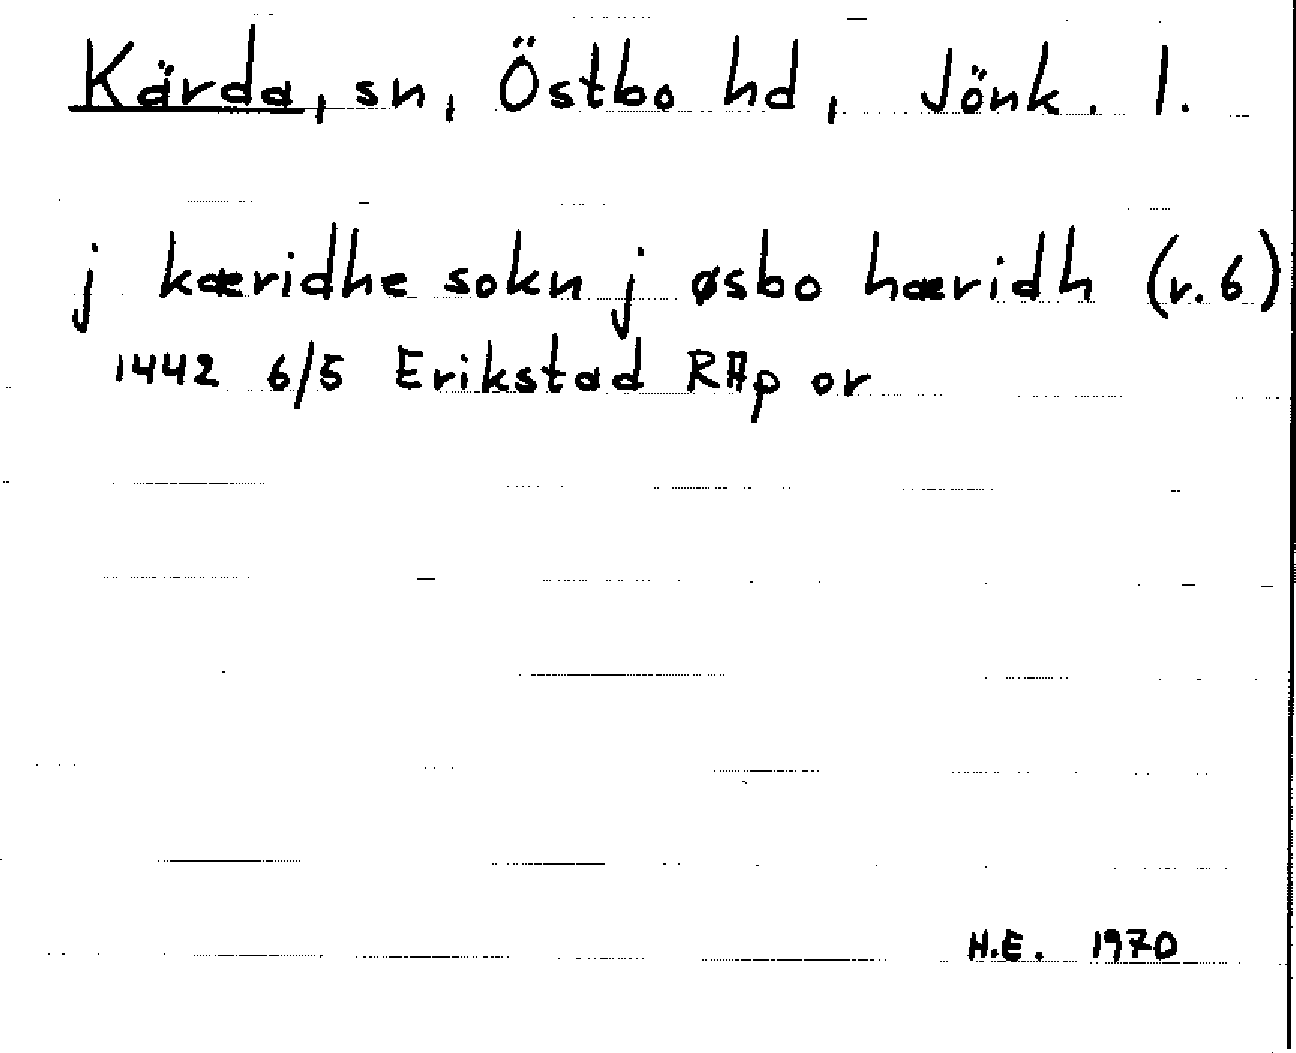 Kärda, sn, Östbo hd, Jönk. l.
j kæridhe sokn j øsbo hæridh (r.6)
1442 6/5 Erikstad RAp or
H.E. 1970